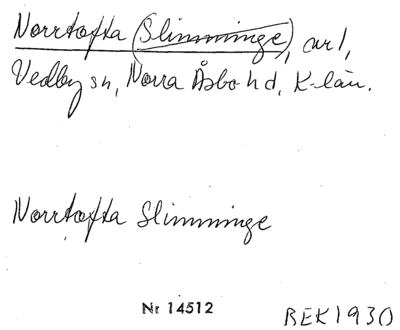 Norrtofta (Slimminge), nr 1,
Vedby sn, Norra Åsbo hd, K-län.
Norrtofta Slimminge
Nr 14512
BEK 1930